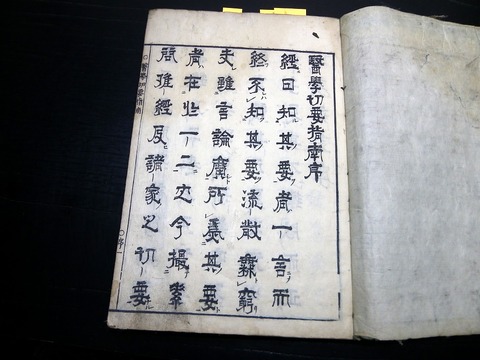 醫學切要指南序
經曰知其要者一言而
終不知其要流散無窮
夫雖言論廣所其要
者在此一二也今撮素
問難經及諸家之切要
醫學切要指南 ○序一